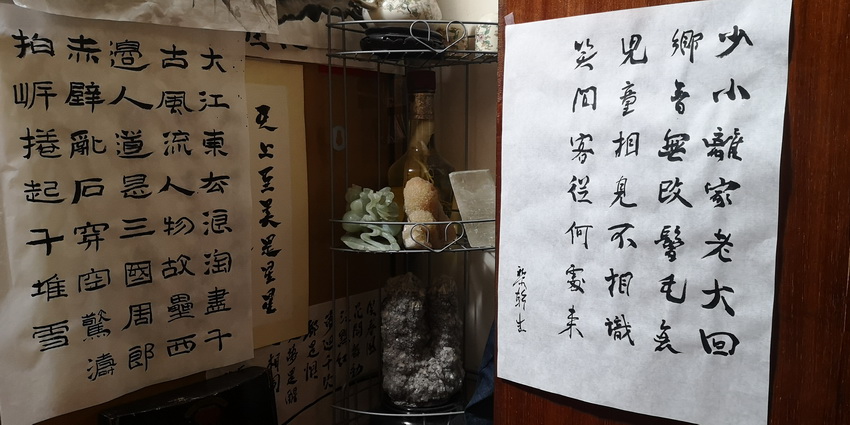 大江東去浪淘盡千
古風流人物故壘西
邊人道是三國周郎
赤壁亂石穿空驚濤
拍岸捲起千堆雪
天上至美是星星
少小離家老大回
鄉音無改鬢毛衰
兒童相見不相識
笑問客從何處來